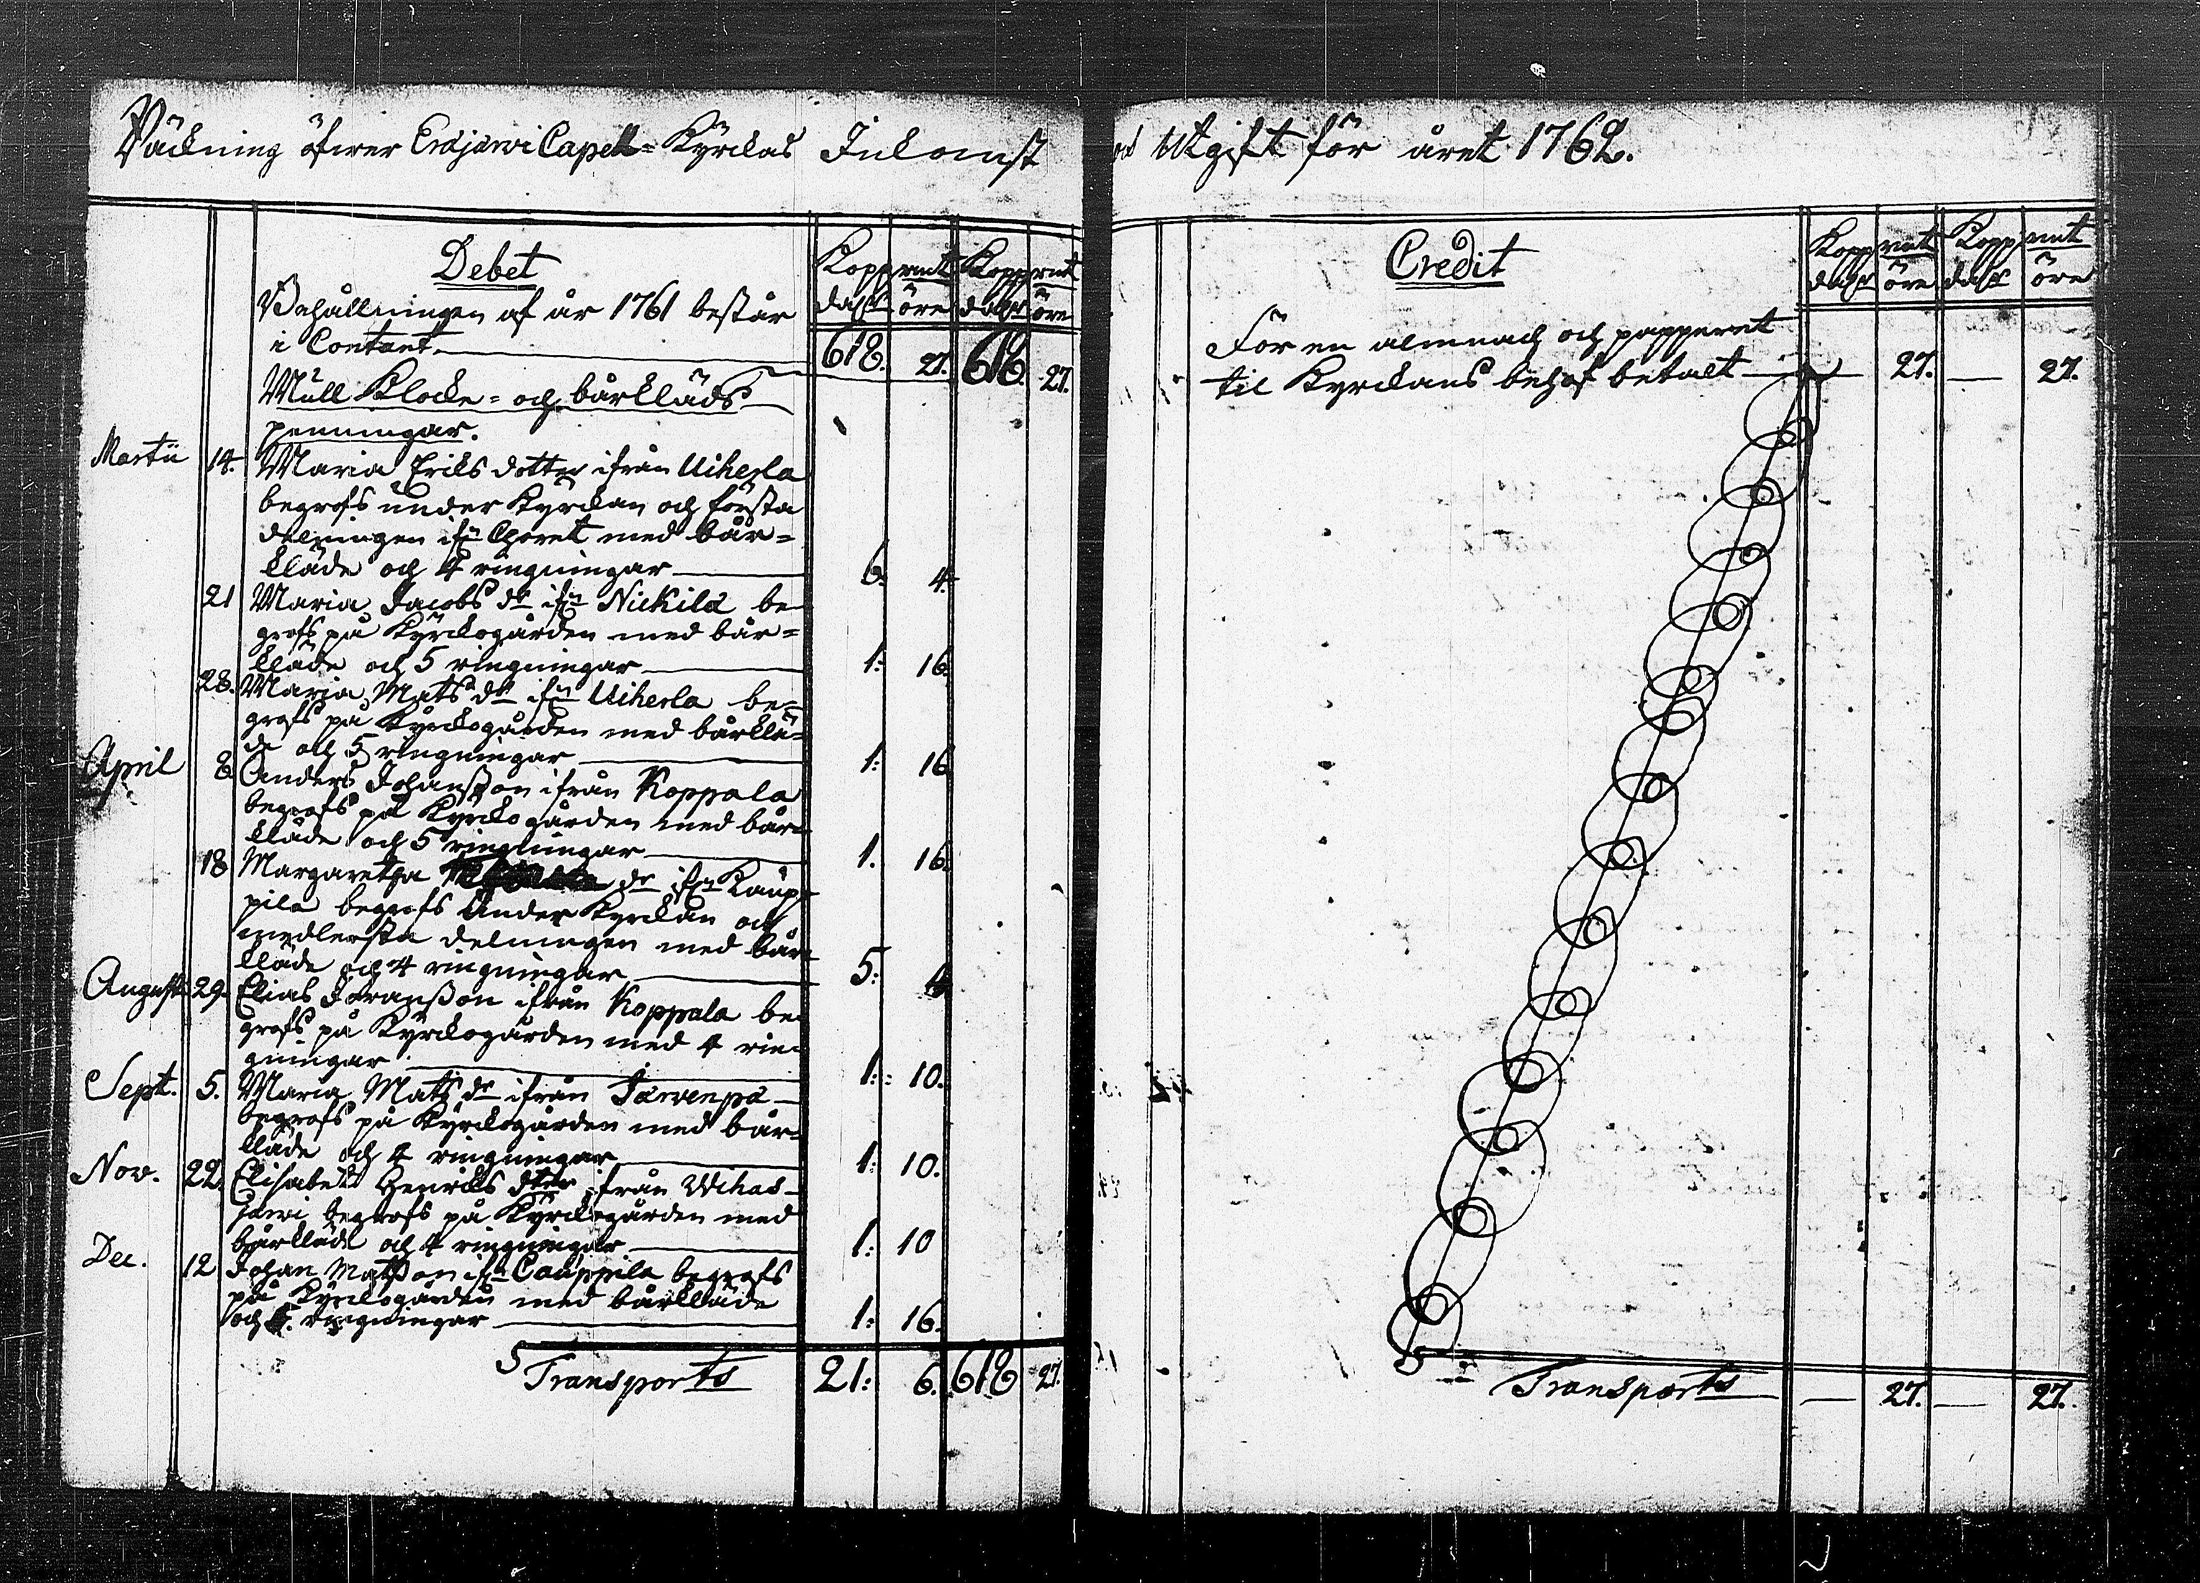 Räckning öfwer Eräjärwi Capell-Kyrckas Inkomst
och Utgift för året 1762.
Debet
Koppmt Koppmt
dahlr öre dahlr öre
Behållningen af år 1761 består
i Contant. 618. 27. 618. 27.
Mull Klocke- och bårkläds
penningar.
Martii 14. Maria Eriks dotter ifrån Uiherla
begrofs under Kyrckan och första
delningen ifrn Choret med bår-
kläde och 4 ringningar 6. 4.
21 Maria Jacobs dr ifrn Nickilä be-
grofs på Kyrckogården med bår-
kläde och 5 ringningar 1: 16.
28. Maria Mats dr ifrn Uiherla be-
grofs på Kyrckogården med bårklä-
de och 5 ringningar 1: 16
April 8. Anders Johansson ifrån Koppala
begrofs på Kyrckogården med bår-
kläde och 5 ringningar 1. 16.
18 Margaretha dr ifrn Kaup-
pila begrofs under Kyrckan och
medlersta delningen med bår-
kläde och 4 ringningar 5: 4.
August. 29. Elias Göransson ifrån Koppala be-
grofs på Kyrckogården med 4 rin-
gningar 1: 10.
Sept. 5. Maria Mats dr ifrån Järvenpä
begrofs på Kyrckogården med bår-
kläde och 4 ringningar 1: 10.
Nov. 22. Elisabeta Henricks dter ifrån Wihas-
järwi begrofs på Kyrckogården med
bårkläde och 4 ringningar 1: 10
Dec. 12 Johan Matsson ifrn Cauppila begrofs
på Kyrckogården med bårkläde
och 5. ringningar 1: 16.
Transports 21: 6. 618 27.
Credit
Koppmt Koppmt
dahlr öre dahlr öre
För en almnach och papperet
til Kyrckans behof betalt 27. 27.
Transports 27. 27.